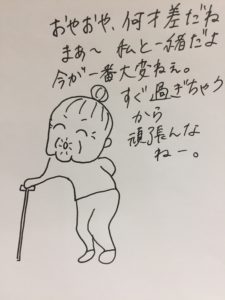 おやおや、何才差だね
まぁ〜 私と一緒だよ
今が一番大変ねぇ。
すぐ過ぎちゃう
から
頑張んな
ねー。